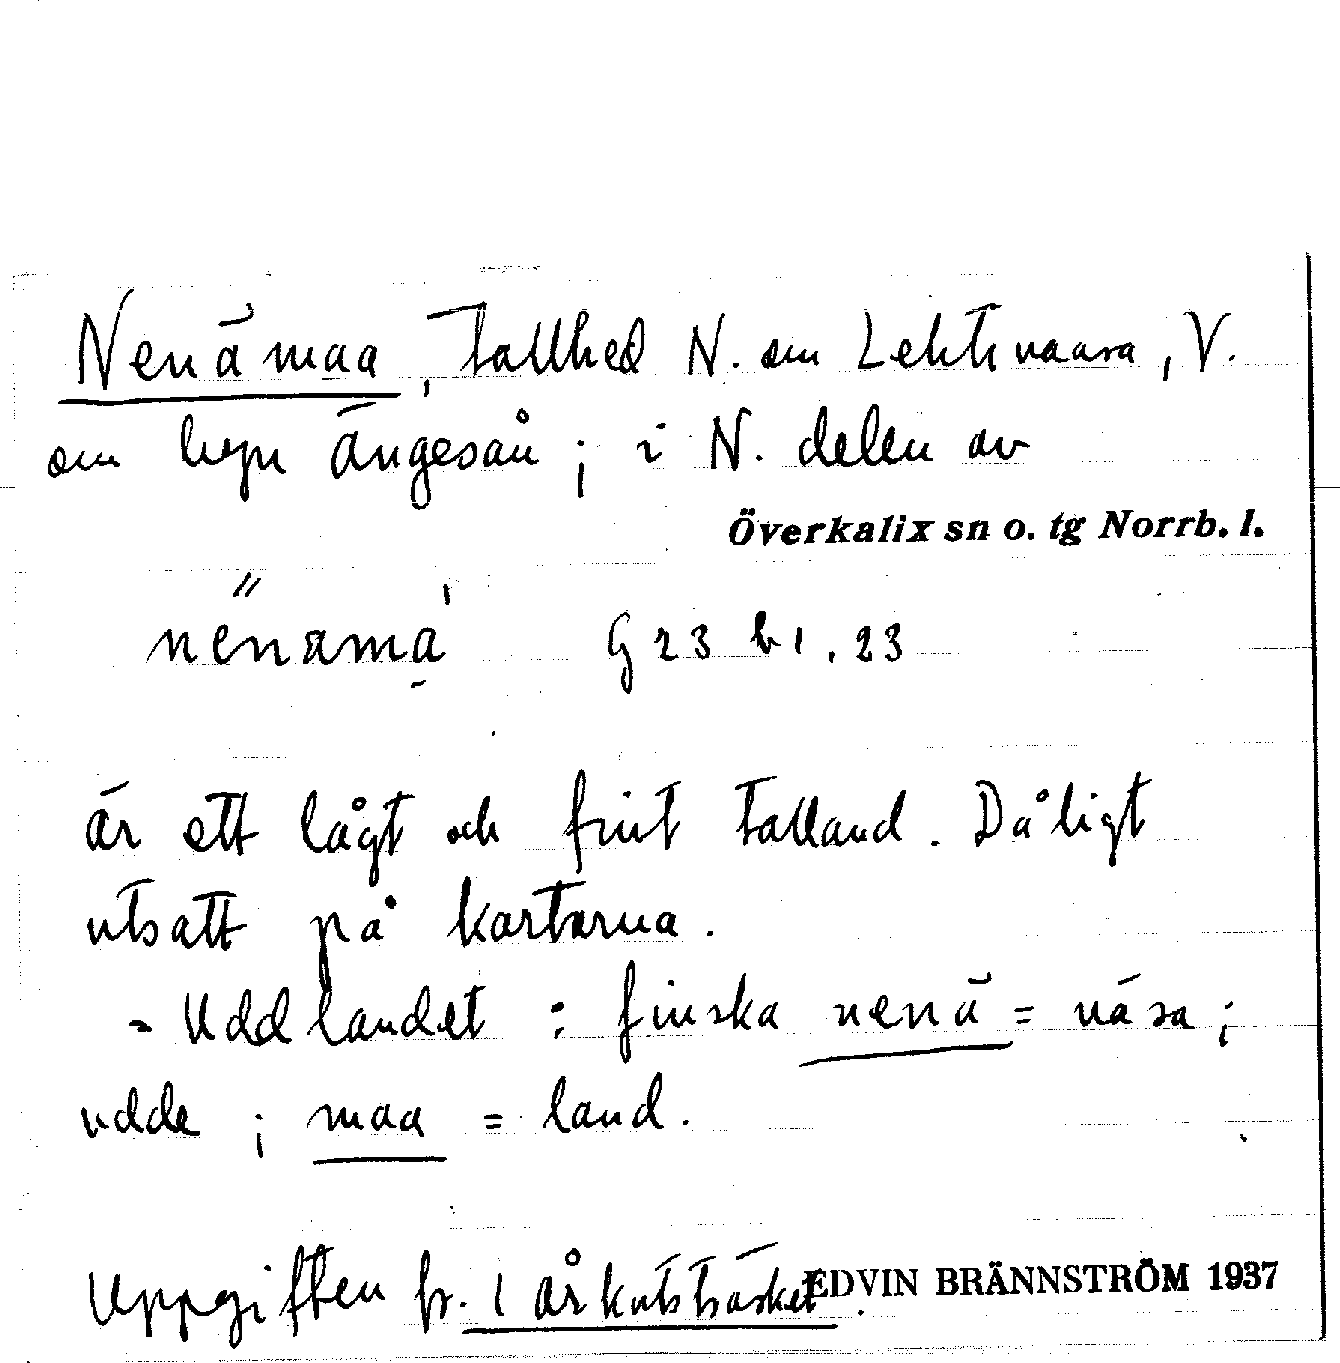 Nenämaa, tallhed N. om Lehtivaara, V.
om byn Ängesån; i N. delen av
Överkalix sn o. tg Norrb. l.
G 23 b 1, 23
är ett lågt och fint talland. Dåligt
utsatt på kartorna.
= Uddlandet: finska nenä = näsa;
udde; maa = land.
Uppgiften fr.
EDVIN BRÄNNSTRÖM 1937